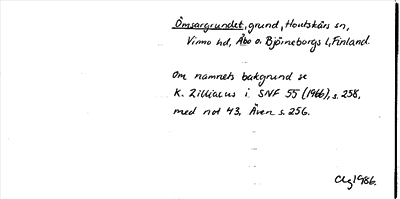 Ömsargrundet, grund, Houtskärs sn,
Virmo hd, Åbo o. Björneborgs l, Finland.
Om namnets bakgrund se
K. Zilliacus i SNF 55 (1966), s. 258,
med not 43, Även s. 256.
1986.